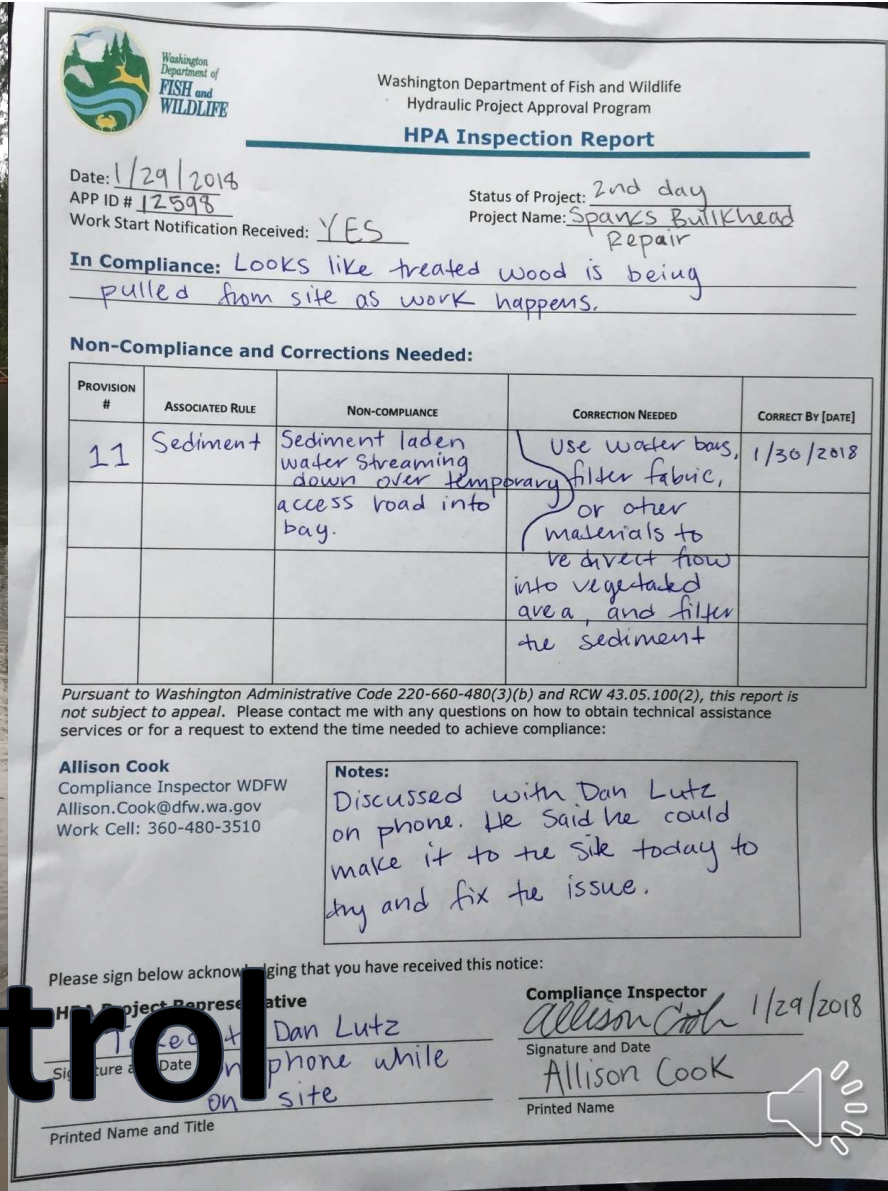 Washington
Department of
FISH and
WILDLIFE
Washington Department of Fish and Wildlife
Hydraulic Project Approval Program
HPA Inspection Report
Date: 1/29/2018
APP ID # 12598
Work Start Notification Received: YES
Status of Project: 2nd day
Project Name: Spanks Bulkhead
Repair
In Compliance: Looks like treated wood is being
pulled from site as work happens.
Non-Compliance and Corrections Needed:
PROVISION
#
ASSOCIATED RULE
NON-COMPLIANCE
CORRECTION NEEDED
CORRECT BY [DATE]
11
Sediment
Sediment laden
water streaming
down over temporary
access road into
bay.
use water bars,
filter fabric,
or other
materials to
redirect flow
into vegetated
area, and filter
the sediment
1/30/2018
Pursuant to Washington Administrative Code 220-660-480(3)(b) and RCW 43.05.100(2), this report is
not subject to appeal. Please contact me with any questions on how to obtain technical assistance
services or for a request to extend the time needed to achieve compliance:
Allison Cook
Compliance Inspector WDFW
Allison.Cook@dfw.wa.gov
Work Cell: 360-480-3510
Notes:
Discussed with Dan Lutz
on phone. He said he could
make it to the site today to
try and fix the issue.
Please sign below acknowledging that you have received this notice:
HPA Project Representative
Dan Lutz
phone while
on site
Signature and Date
Printed Name and Title
Compliance Inspector
Allison Cook 1/29/2018
Signature and Date
Allison Cook
Printed Name
trol